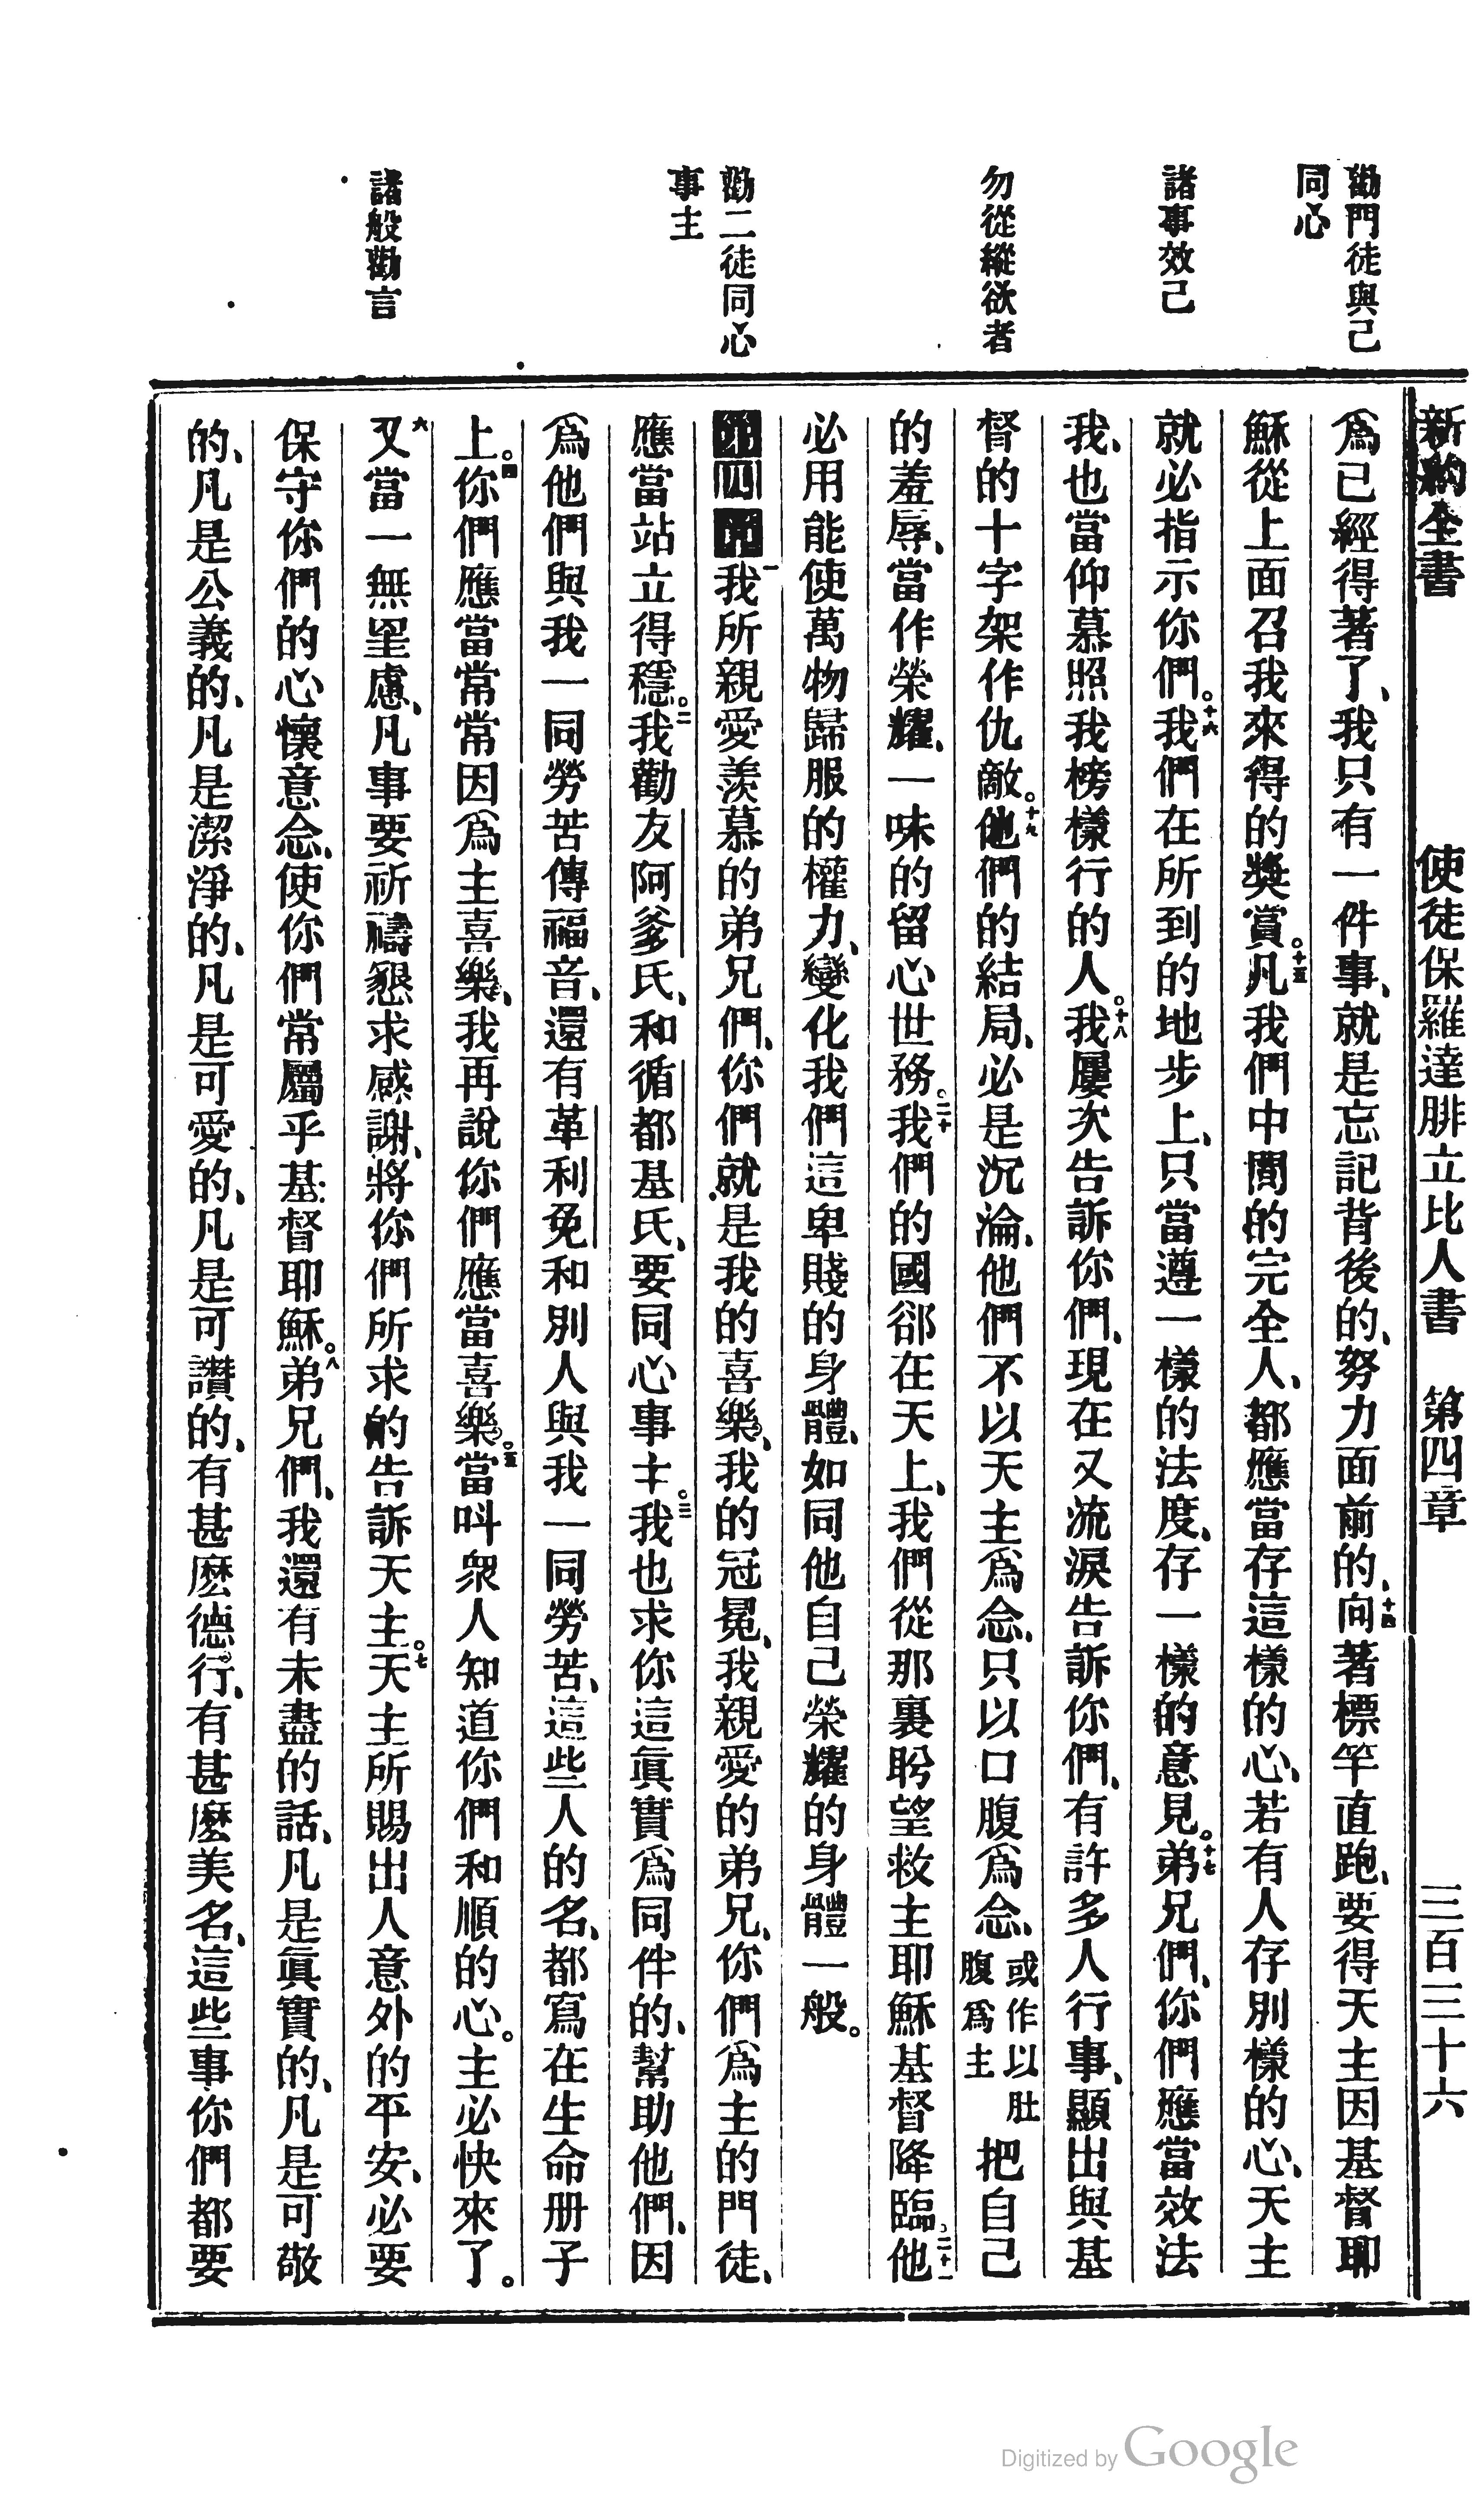 新約全書　使徒保羅達腓立比人書　第四章　三百三十六
勸門徒與己
同心
諸事效己
勿從縱欲者
勸二徒同心
事主
諸般勸言
爲已經得著了、我只有一件事、就是忘記背後的、努力面前的、十四向著標竿直跑、要得天主因基督耶
穌從上面召我來得的獎賞。十五凡我們中間的完全人、都應當存這樣的心、若有人存別樣的心、天主
就必指示你們。十六我們在所到的地步上、只當遵一樣的法度、存一樣的意見。十七弟兄們、你們應當效法
我、也當仰慕照我榜樣行的人。十八我屢次告訴你們、現在又流淚告訴你們、有許多人行事、顯出與基
督的十字架作仇敵。十九他們的結局、必是沉淪、他們不以天主爲念、只以口腹爲念、或作以肚腹爲主把自己
的羞辱、當作榮耀、一味的留心世務。二十我們的國郤在天上、我們從那裏盼望救主耶穌基督降臨。二十一他
必用能使萬物歸服的權力、變化我們這卑賤的身體、如同他自己榮耀的身體一般。
第四章一我所親愛羨慕的弟兄們、你們就是我的喜樂、我的冠冕、我親愛的弟兄、你們爲主的門徒、
應當站立得穩。二我勸友阿爹氏、和循都基氏、要同心事主。三我也求你這眞實爲同伴的、幫助他們、因
爲他們與我一同勞苦傳福音、還有革利免和別人與我一同勞苦、這些人的名、都寫在生命册子
上。四你們應當常常因爲主喜樂、我再說你們應當喜樂。五當呌衆人知道你們和順的心。主必快來了。
六又當一無罣慮、凡事要祈禱懇求感謝、將你們所求的告訴天主。七天主所賜出人意外的平安、必要
保守你們的心懷意念、使你們常屬乎基督耶穌。八弟兄們、我還有未盡的話、凡是眞實的、凡是可敬
的、凡是公義的、凡是潔淨的、凡是可愛的、凡是可讚的、有甚麽德行、有甚麽美名、這些事你們都要
Digitized by Google